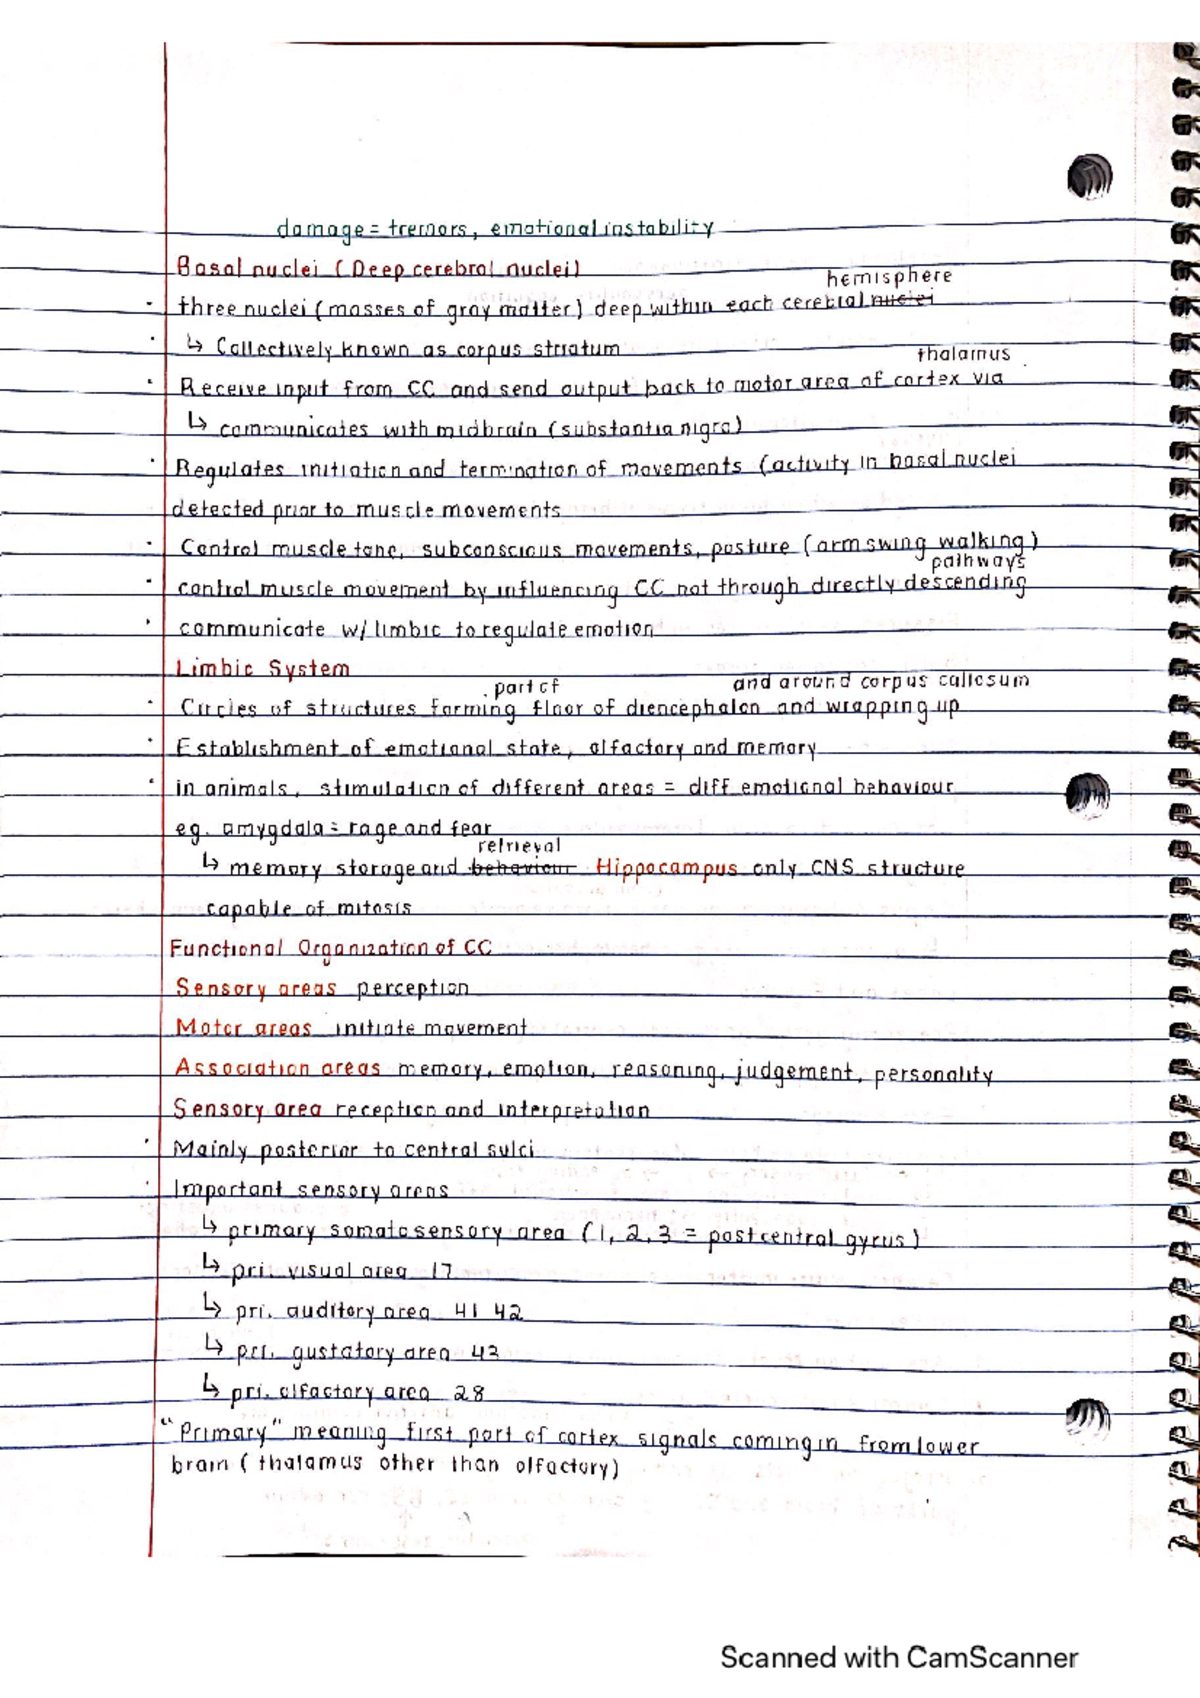 damage = tremors, emotional instability
Basal nuclei (Deep cerebral nuclei)
hemisphere
· three nuclei (masses of gray matter) deep within each cerebral nuclei
· ↳ Collectively known as corpus striatum
thalamus
· Receive input from CC and send output back to motor area of cortex via
↳ communicates with midbrain (substantia nigra)
· Regulates initiation and termination of movements (activity in basal nuclei
detected prior to muscle movements
· Control muscle tone, subconscious movements, posture (arm swing walking)
pathways
· control muscle movement by influencing CC not through directly descending
· communicate w/ limbic to regulate emotion
Limbic System
part of and around corpus callosum
· Circles of structures forming floor of diencephalon and wrapping up
· Establishment of emotional state, olfactory and memory
· in animals, stimulation of different areas = diff emotional behaviour
eg. amygdala = rage and fear
retrieval
↳ memory storage and behaviour Hippocampus only CNS structure
capable of mitosis
Functional Organization of CC
Sensory areas perception
Motor areas initiate movement
Association areas memory, emotion, reasoning, judgement, personality
Sensory area reception and interpretation
· Mainly posterior to central sulci
· Important sensory areas
↳ primary somatosensory area (1, 2, 3 = postcentral gyrus)
↳ pri. visual area 17
↳ pri. auditory area 41 42
↳ pri. gustatory area 43
↳ pri. olfactory area 28
"Primary" meaning first part of cortex signals coming in from lower
brain (thalamus other than olfactory)
Scanned with CamScanner